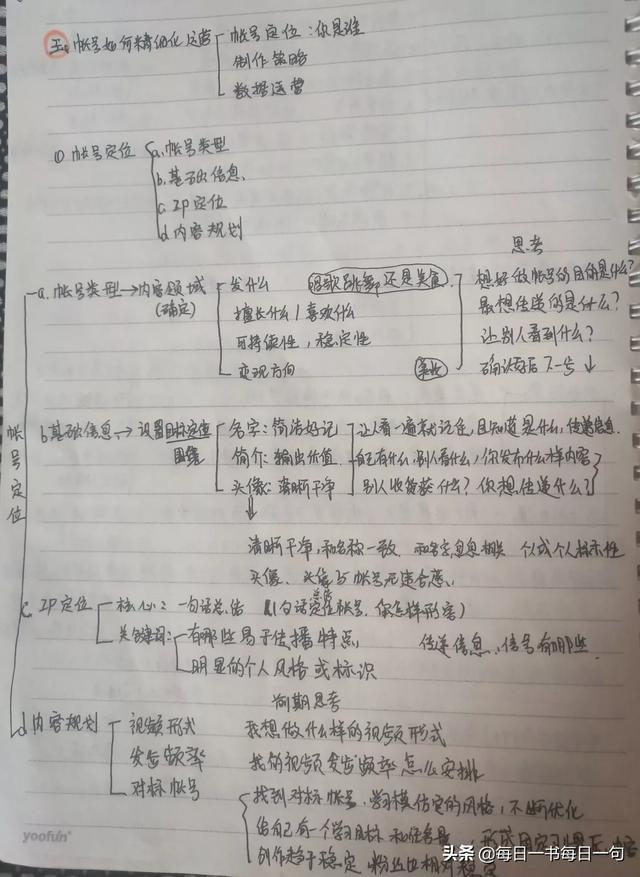 五、帐号如何精细化运营 帐号定位：你是谁
制作策略
数据运营
① 帐号定位 a.帐号类型
b.基础信息、
c.IP定位
d.内容规划
思考
a.帐号类型→内容领域 发什么 唱歌跳舞还是美食 想好做帐号的目的是什么?
(确定) 擅长什么/喜欢什么 最想传递的是什么?
可持续性，稳定性 让别人看到什么?
变现方向 确认好后下一步↓
帐号定位
b基础信息→设置目标定位 名字：简洁好记 让人看一遍就记住,且知道是什么,传递信息.
围绕 简介：输出价值 自己有什么,别人看什么,你发布什么样内容
头像：清晰干净 别人收货获什么? 你想传递什么?
↓
清晰干净,和名称一致 和名字息息相关
头像、头像与帐号
c IP定位 核心：一句话总结 (1句话定位帐号,你怎样形容)
关键词：有哪些易于传播特点， 传递信息、信号有哪些
明显的个人风格或标识
前期思考
d内容规划 视频形式 我想做什么样的视频形式
发告频率 我的视频发告频率怎么安排
对标帐号 找到对标帐号,学习模仿定的风格,不断优化
给自己有一个学习目标
创作趋于稳定 粉丝也相对稳定
yoofun
头条 @每日一书每日一句